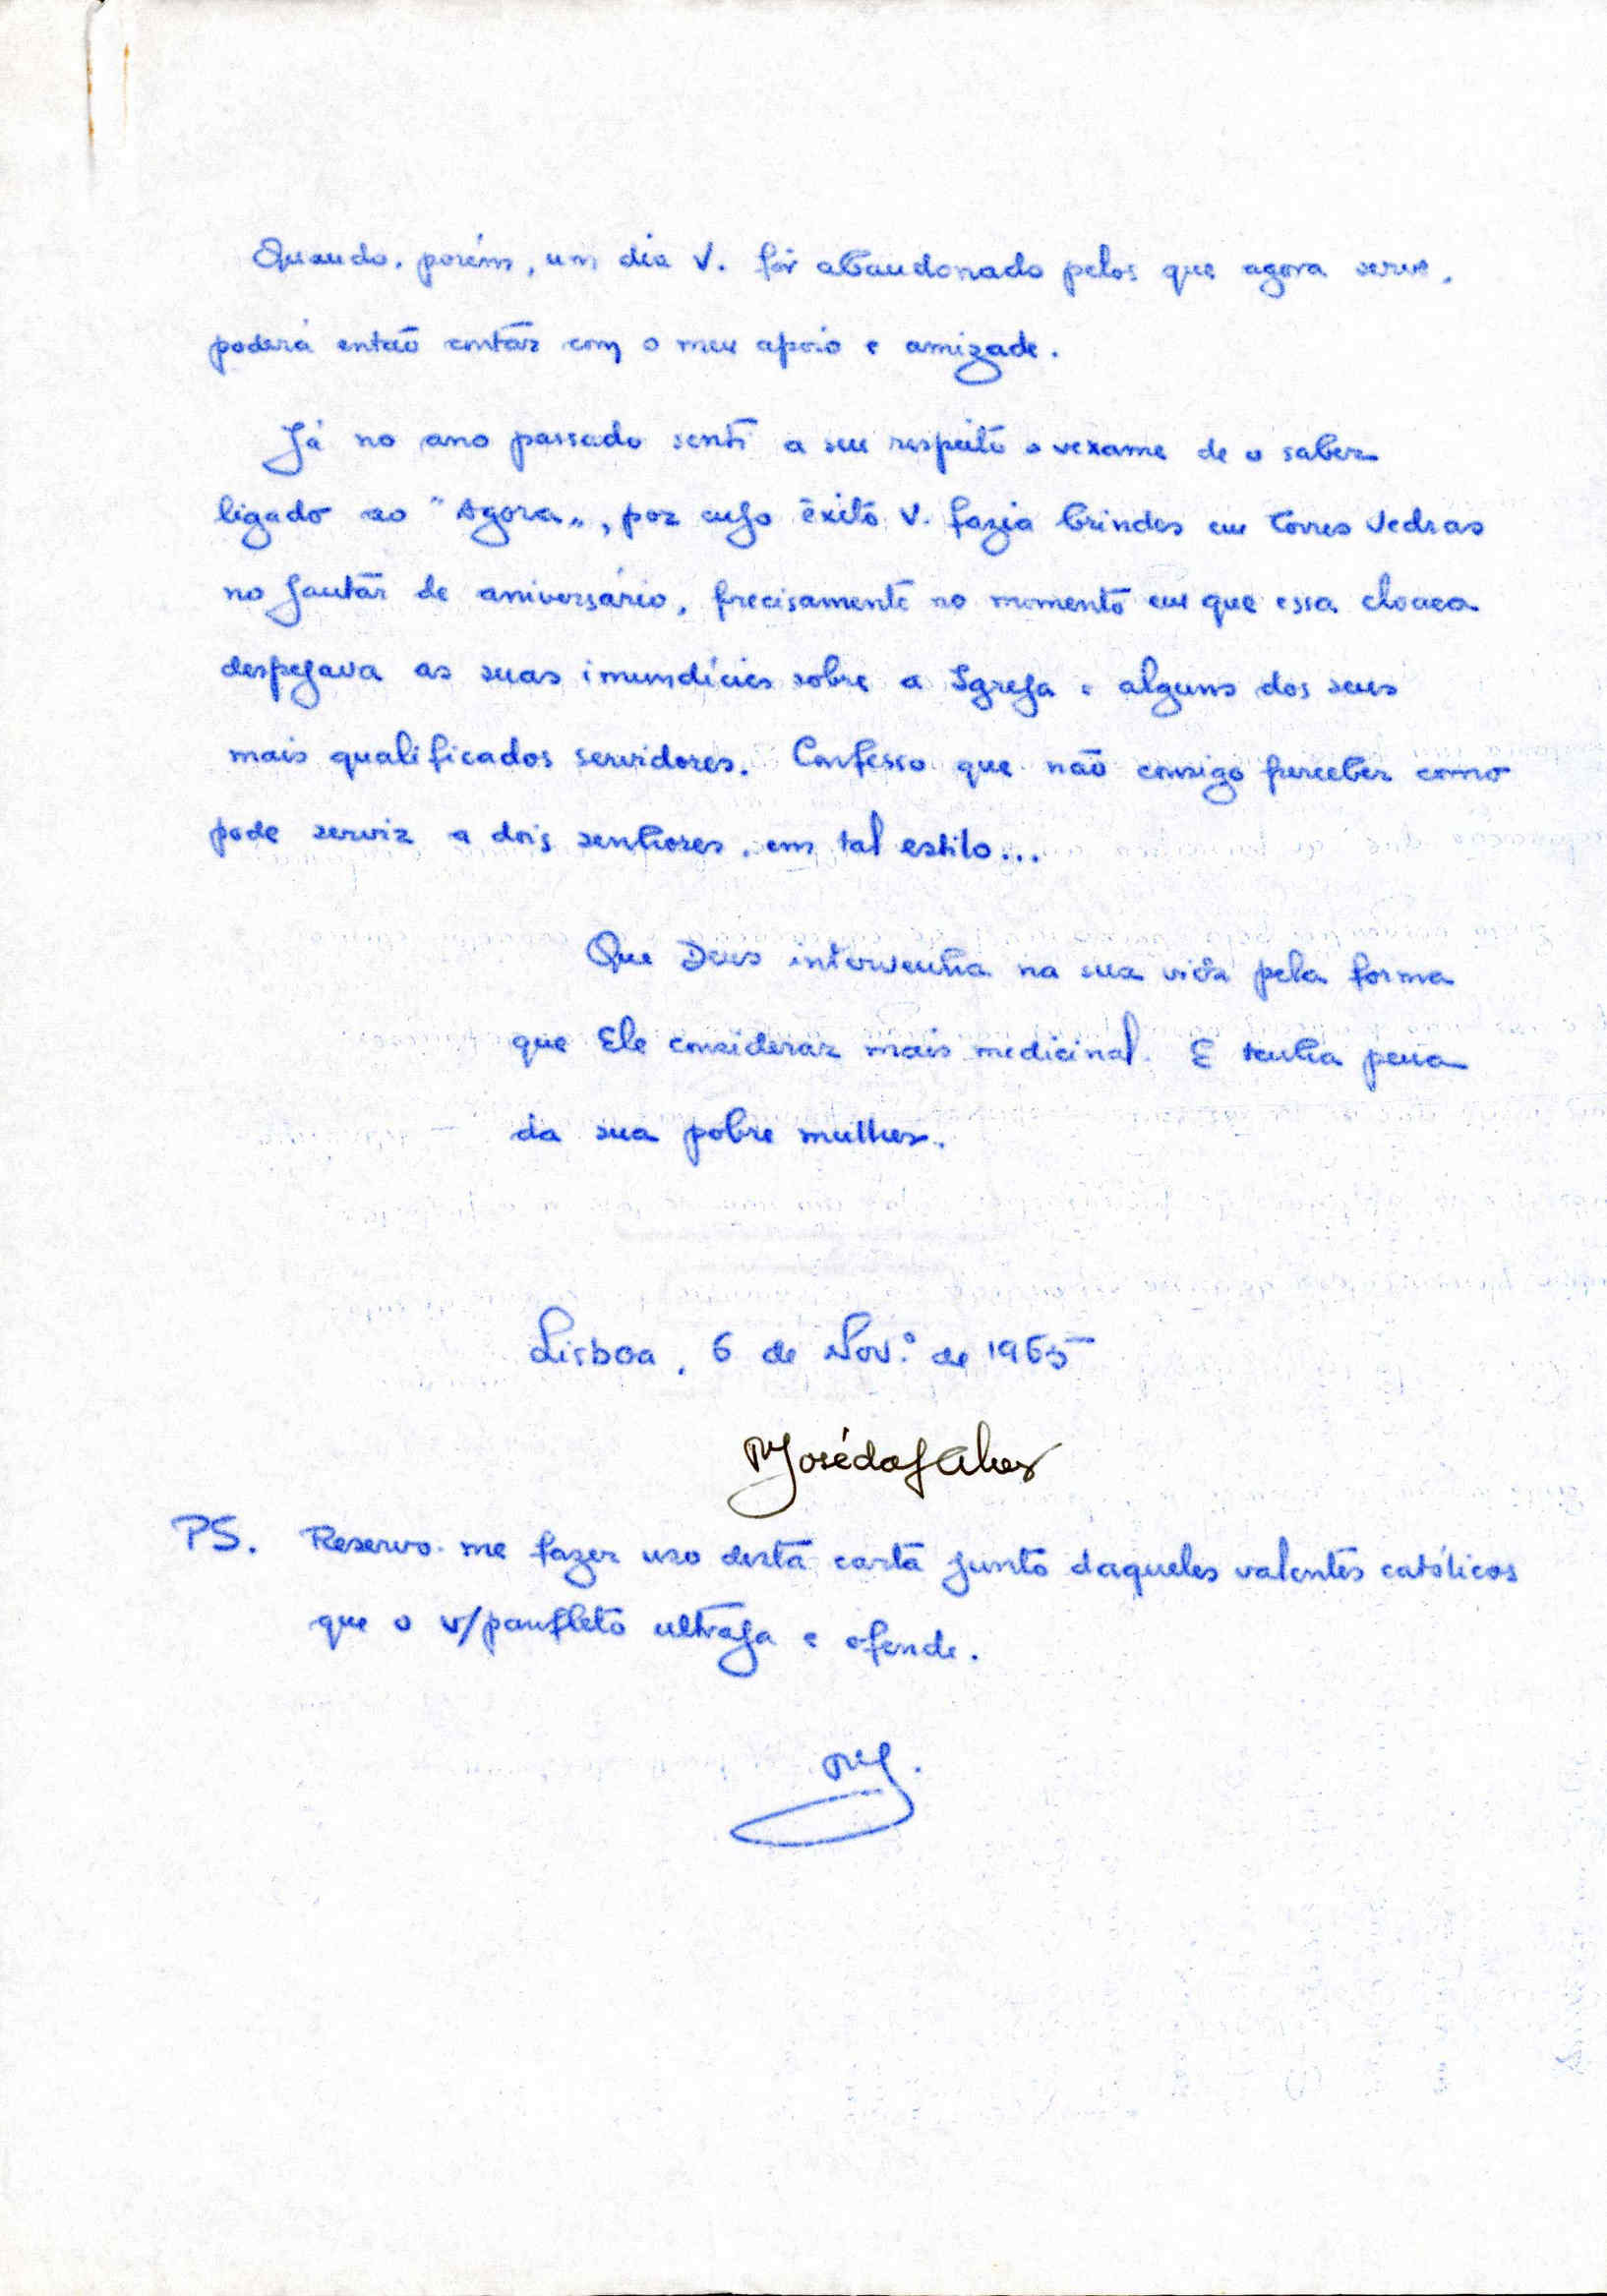 Quando, porém, um dia V. fôr abandonado pelos que agora serve,
poderá então contar com o meu apoio e amizade.
Já no ano passado senti a seu respeito o vexame de o saber
ligado ao "Agora", por cujo êxito V. fazia brindes em Torres Vedras
no jantar de aniversário, precisamente no momento em que essa cloaca
despejava as suas imundícies sobre a Igreja e alguns dos seus
mais qualificados servidores. Confesso que não consigo perceber como
pode servir a dois senhores, em tal estilo...
Que Deus intervenha na sua vida pela forma
que Ele considerar mais medicinal. E tenha pena
da sua pobre mulher.
Lisboa, 6 de Nov.º de 1965
José da
PS. Reservo-me fazer uso desta carta junto daqueles valentes católicos
que o v/panfleto ultraja e ofende.